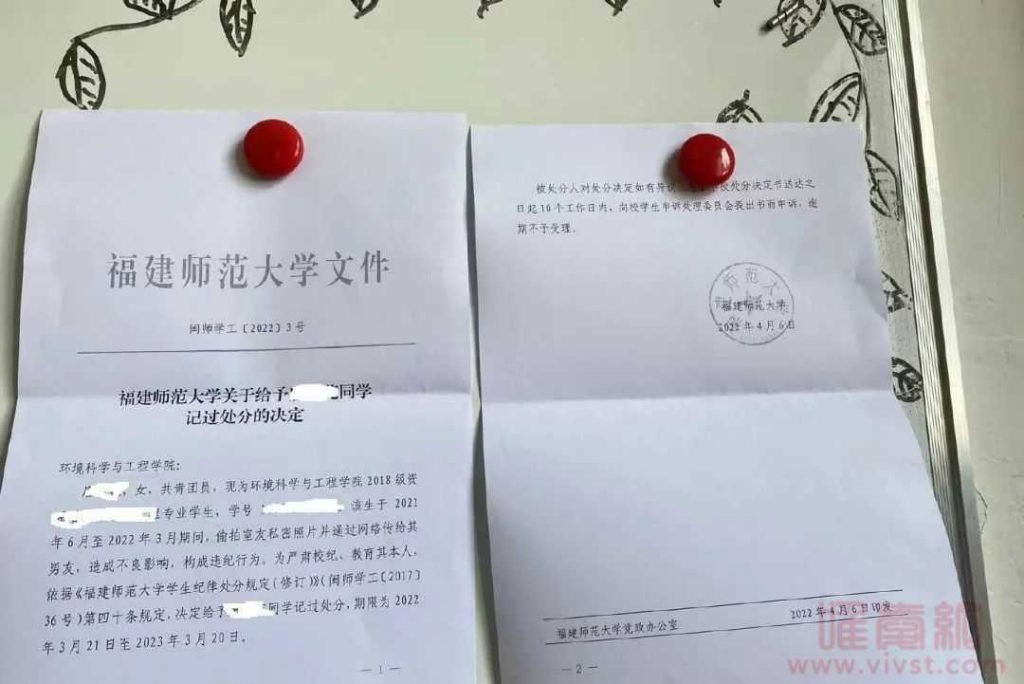 福建师范大学文件
闽师学工〔2022〕3号
福建师范大学关于给予 同学
记过处分的决定
环境科学与工程学院:
女,共青团员,现为环境科学与工程学院2018级资
专业学生,学号 该生于2021
年6月至2022年3月期间,偷拍室友私密照片并通过网络传给其
男友,造成不良影响,构成违纪行为。为严肃校纪、教育其本人,
依据《福建师范大学学生纪律处分规定(修订)》(闽师学工〔2017〕
36号)第四十条规定,决定给予 同学记过处分,期限为2022
年3月21日至2023年3月20日。
— 1 —
被处分人对处分决定如有异议 校处分决定书送达之
日起10个工作日内,向校学生申诉处理委员会提出书面申诉,逾
期不予受理。
福建师范大学
2022年4月6日
福建师范大学党政办公室 2022年4月6日印发
— 2 —
唯南網
www.vivst.com